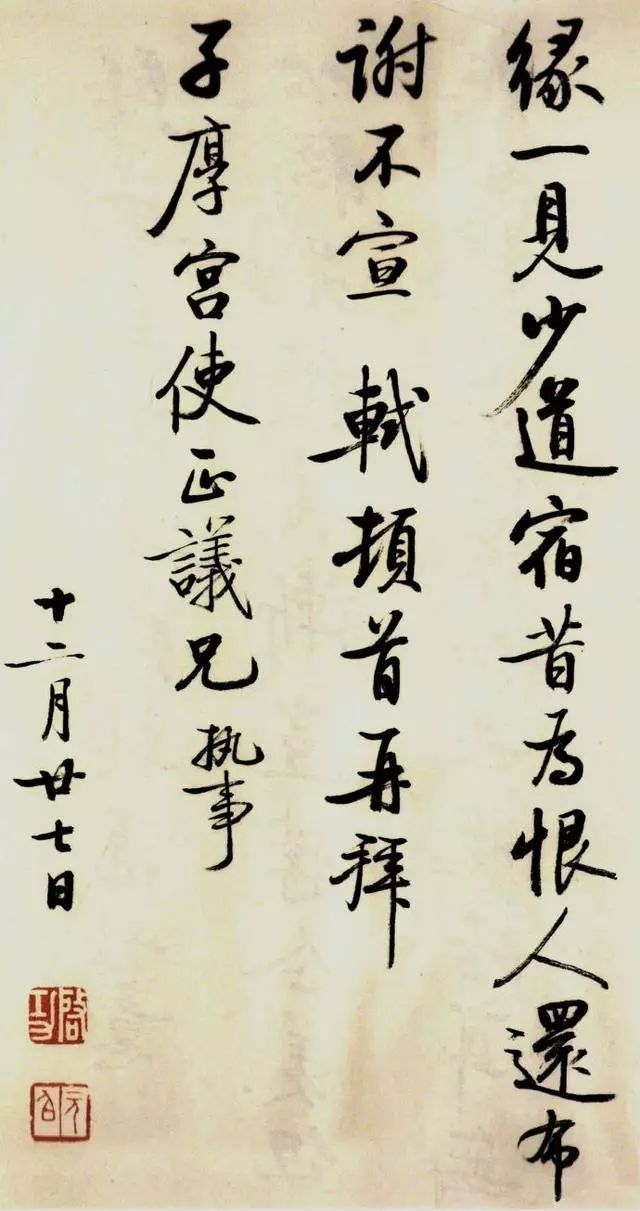 緣一見少道宿昔為恨人還布
謝不宣 軾頓首再拜
子厚宮使正議兄執事
十二月廿七日
啓功
元白